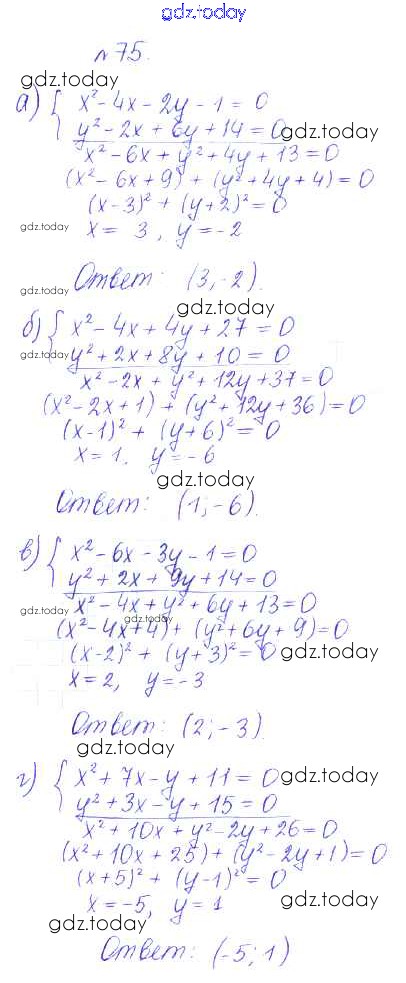 gdz.today
№ 75.
gdz.today
а) { x² - 4x - 2y - 1 = 0
y² - 2x + 6y + 14 = 0 gdz.today
x² - 6x + y² + 4y + 13 = 0
gdz.today (x² - 6x + 9) + (y² + 4y + 4) = 0
(x-3)² + (y+2)² = 0
gdz.today x = 3, y = -2
Ответ: (3,-2).
gdz.today
б) { x² - 4x + 4y + 27 = 0
gdz.today y² + 2x + 8y + 10 = 0
x² - 2x + y² + 12y + 37 = 0
(x² - 2x + 1) + (y² + 12y + 36) = 0
(x-1)² + (y+6)² = 0
x = 1. y = -6
gdz.today
Ответ: (1; -6).
в) { x² - 6x - 3y - 1 = 0
y² + 2x + 9y + 14 = 0
gdz.today x² - 4x + y² + 6y + 13 = 0
gdz.today
(x² - 4x + 4) + (y² + 6y + 9) = 0
(x-2)² + (y+3)² = 0 gdz.today
x = 2, y = -3
Ответ: (2; -3).
gdz.today
г) { x² + 7x - y + 11 = 0 gdz.today
y² + 3x - y + 15 = 0
x² + 10x + y² - 2y + 26 = 0
gdz.today (x² + 10x + 25) + (y² - 2y + 1) = 0
(x+5)² + (y-1)² = 0
x = -5, y = 1 gdz.today
gdz.today
Ответ: (-5; 1)